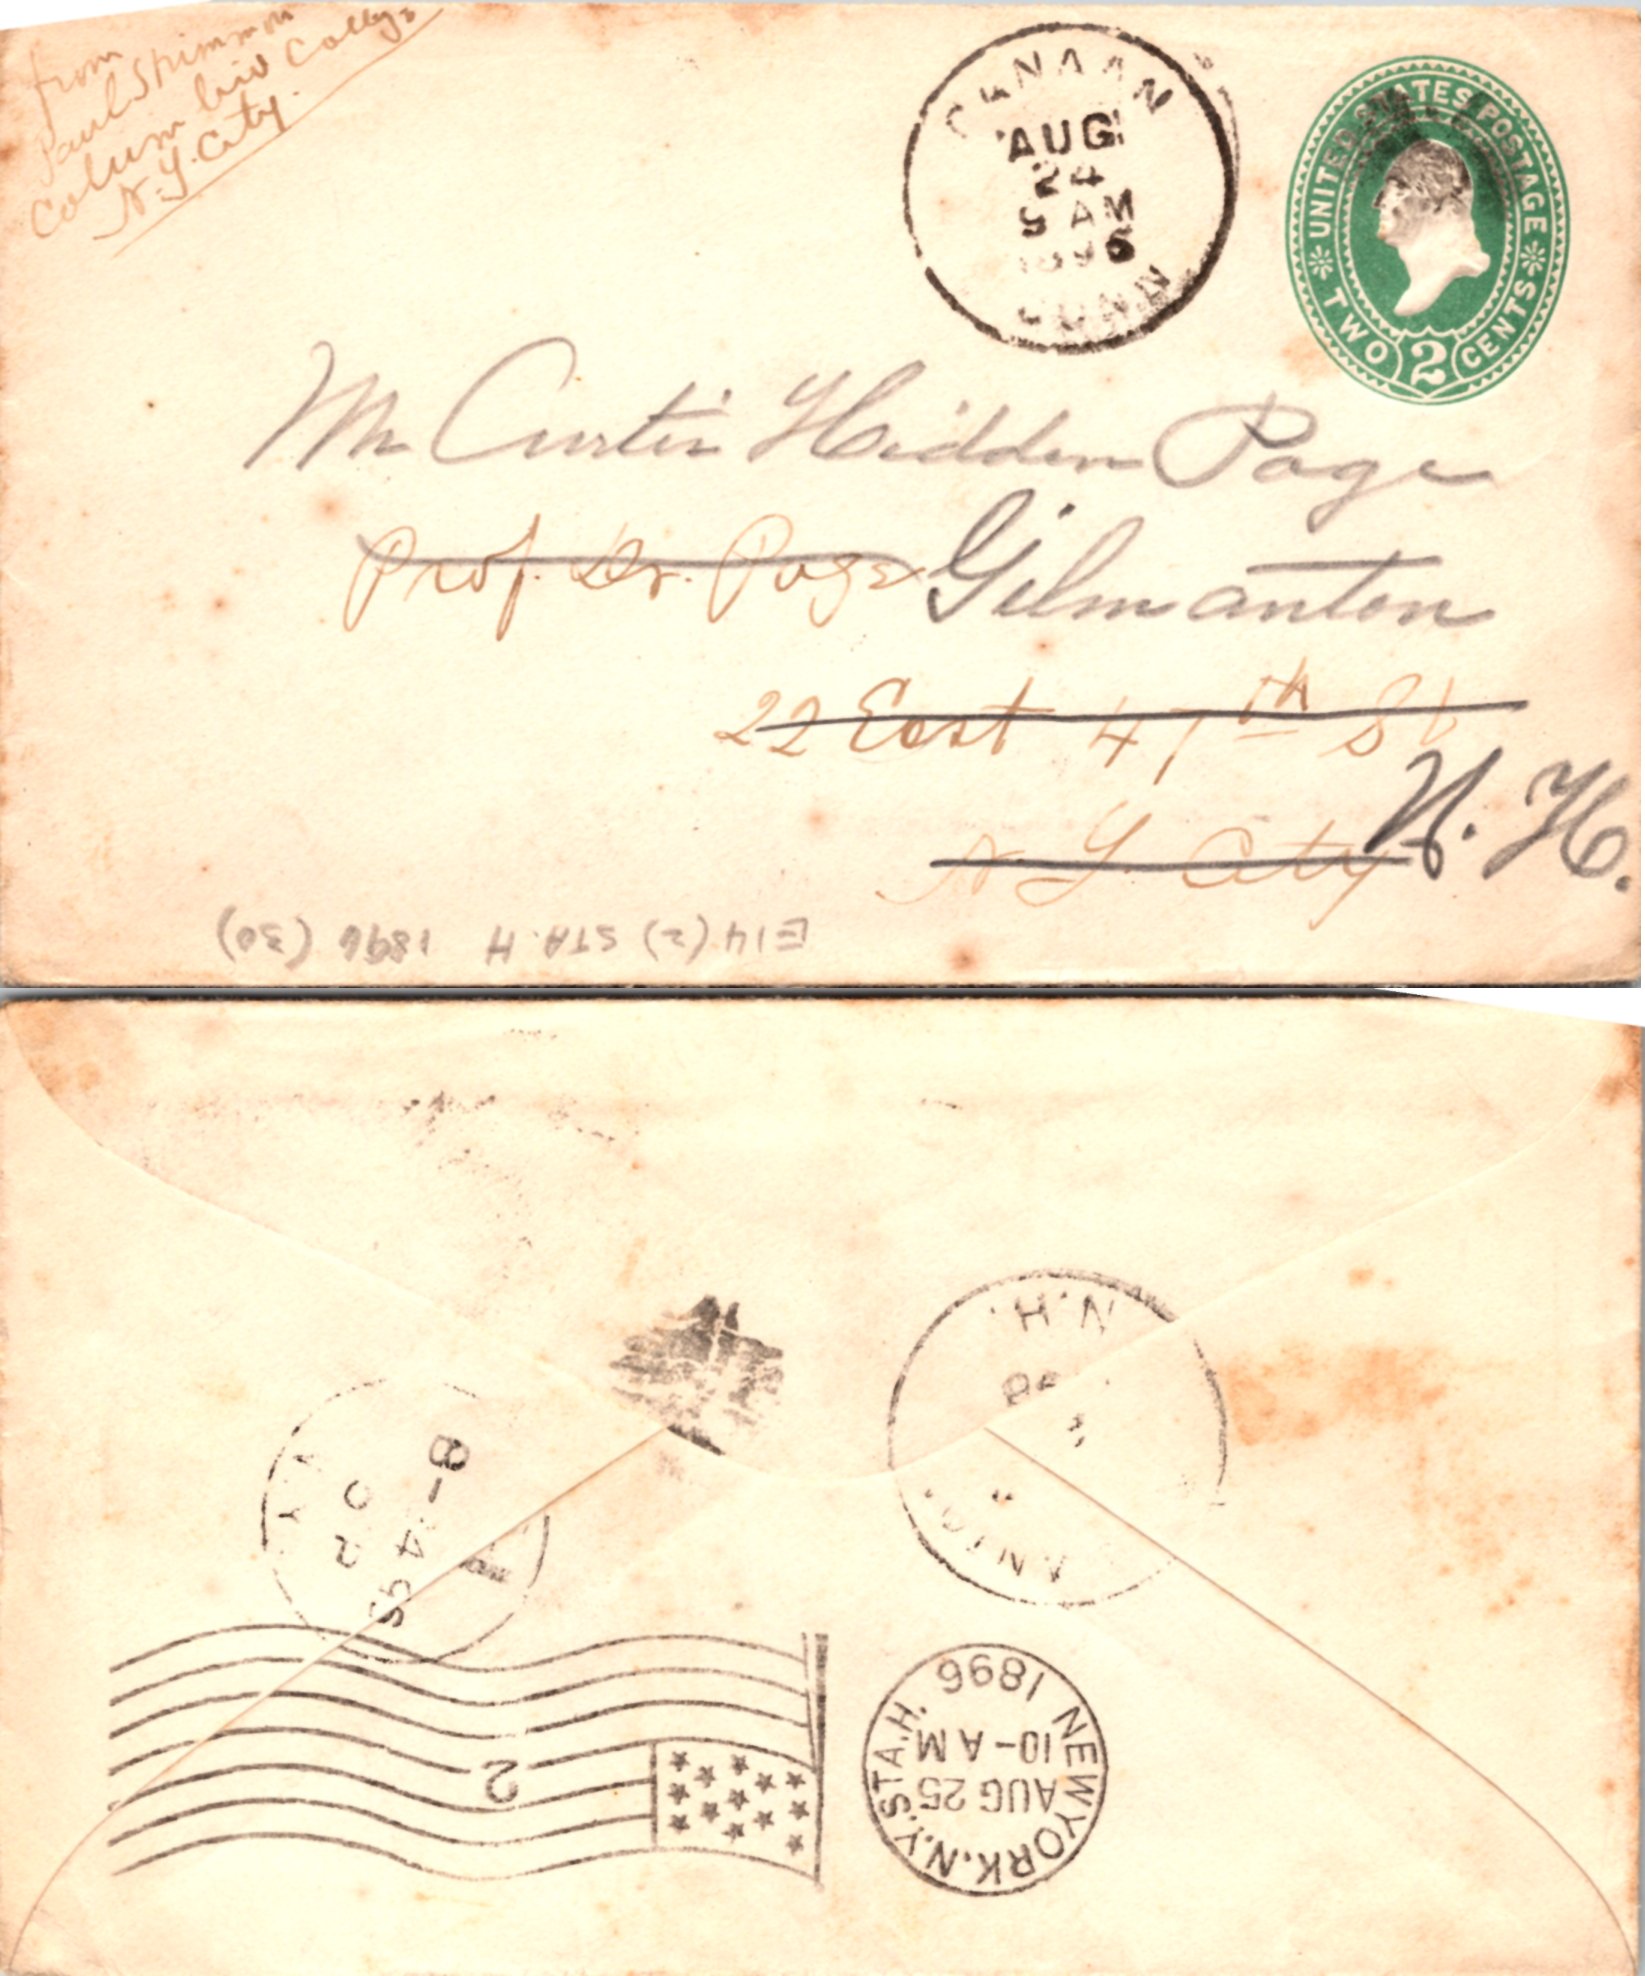 from
Paul Shimmon
Columbia College
N.Y. City.
CANAAN
AUG
24
5 AM
1896
CONN
UNITED STATES POSTAGE
TWO 2 CENTS
Mr Curtis Hidden Page
Prof. Dr. Page Gilmanton
22 East 47th St
N. Y. City N. H.
E14 (2) STA. H 1896 (30)
N.H.
8-
2
NEW YORK, N.Y. STA. H.
AUG 25
10-AM
1896